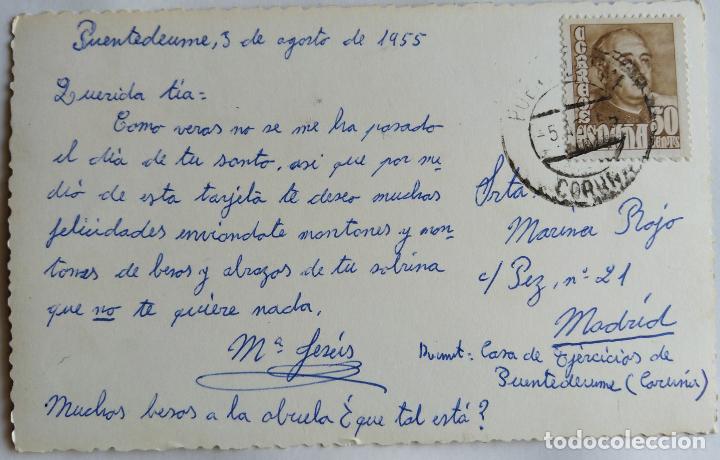 Puentedeume, 3 de agosto de 1955
Querida tía=
Como veras no se me ha pasado
el día de tu santo, asi que por me
dio de esta tarjeta te deseo muchas
felicidades enviandote montones y mon-
tones de besos y abrazos de tu sobrina
que no te quiere nada.
Mª Jesús
Muchos besos a la abuela ¿que tal está?
CORREOS
ESPAÑA
50
CENTS
CORUÑA
Srta.
Marina Rojo
c/ Pez, nº 21
Madrid
Casa de Ejércicios de
Puentedeume (Coruña)
todocoleccion